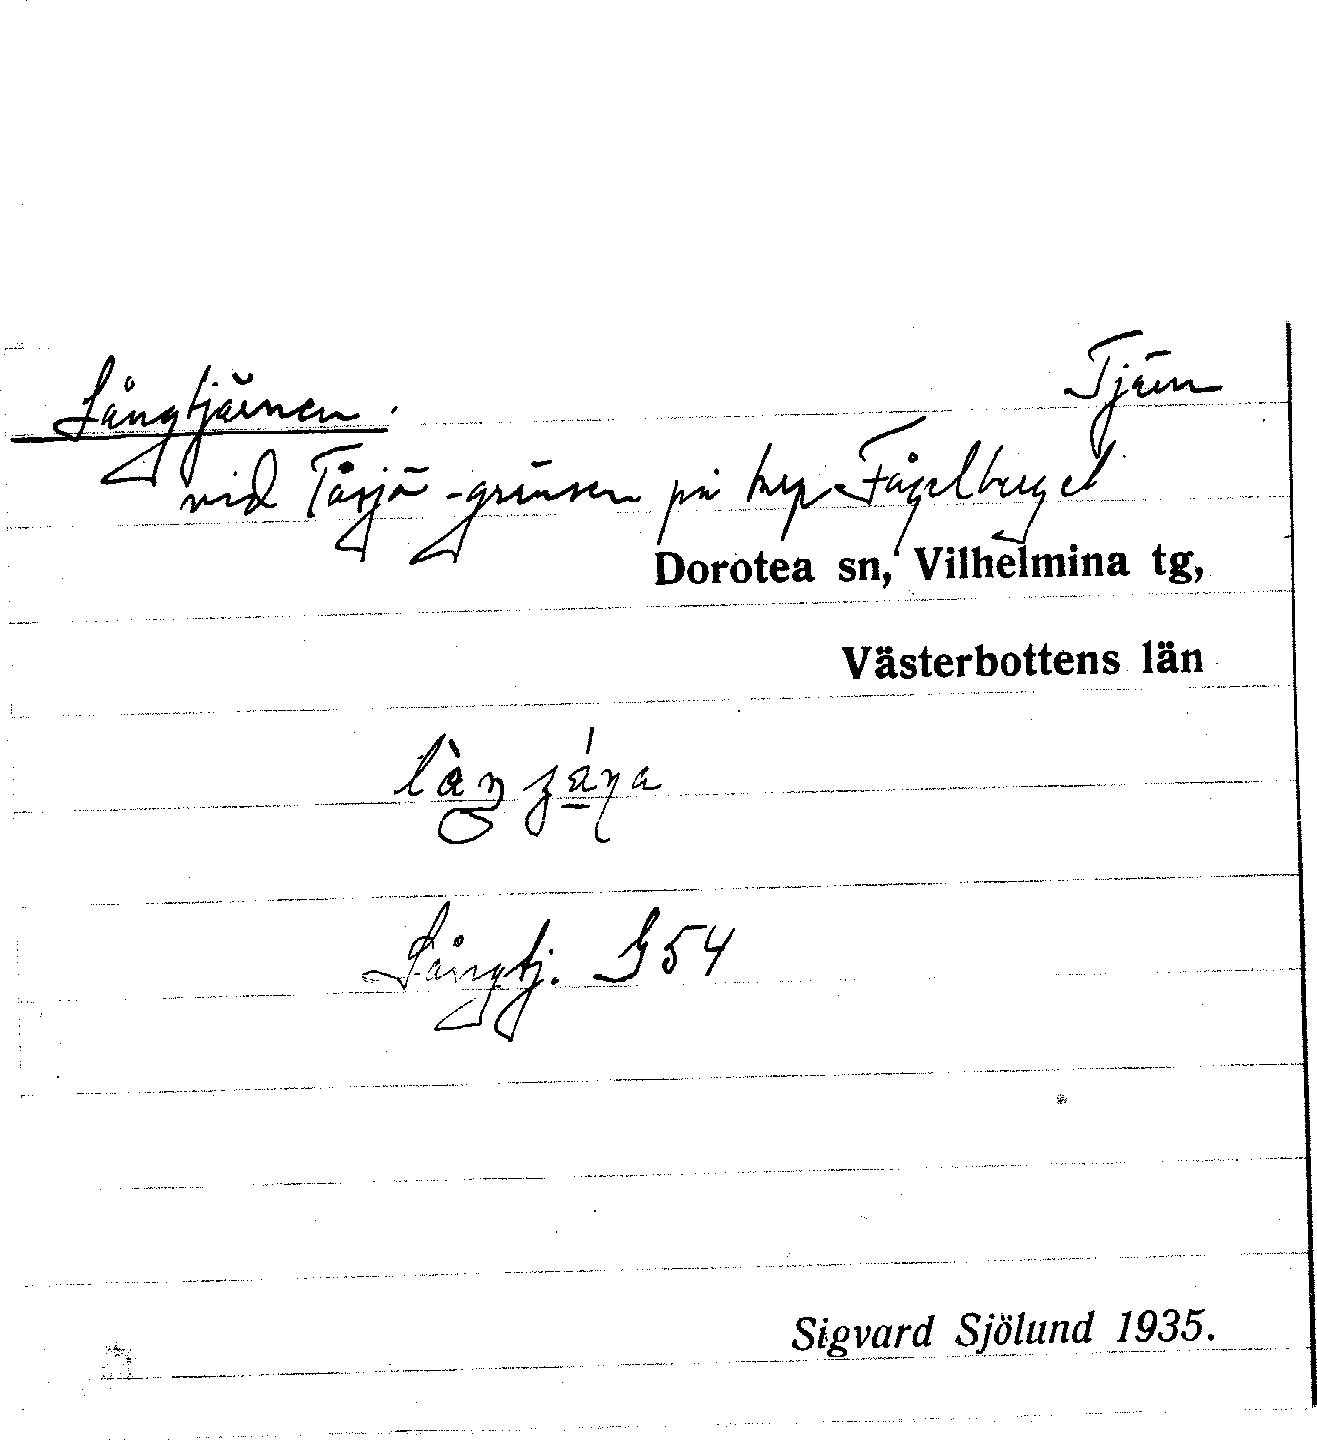 Långtjärnen.
Tjärn
vid Tåsjö-gränsen på krp Fågelberget
Dorotea sn, Vilhelmina tg,
Västerbottens län
Långtj. G54
Sigvard Sjölund 1935.